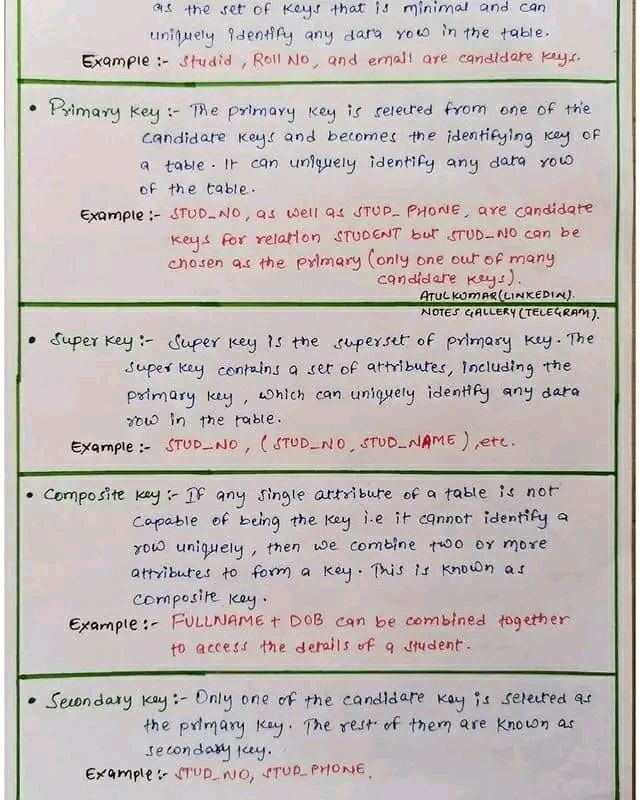 as the set of keys that is minimal and can
uniquely identify any data row in the table.
Example :- Studid, Roll No, and email are candidate keys.
• Primary Key :- The primary key is selected from one of the
candidate keys and becomes the identifying key of
a table. It can uniquely identify any data row
of the table.
Example :- STUD_NO, as well as STUD_PHONE, are candidate
keys for relation STUDENT but STUD_NO can be
chosen as the primary (only one out of many
candidate keys).
ATULKUMAR(LINKEDIN).
NOTES GALLERY(TELEGRAM).
• Super Key :- Super key is the superset of primary key. The
super key contains a set of attributes, including the
primary key, which can uniquely identify any data
row in the table.
Example :- STUD_NO, (STUD_NO, STUD_NAME), etc.
• Composite Key :- If any single attribute of a table is not
capable of being the key i.e it cannot identify a
row uniquely, then we combine two or more
attributes to form a key. This is known as
composite key.
Example :- FULLNAME + DOB can be combined together
to access the details of a student.
• Secondary Key :- Only one of the candidate key is selected as
the primary key. The rest of them are known as
secondary key.
Example :- STUD_NO, STUD_PHONE.